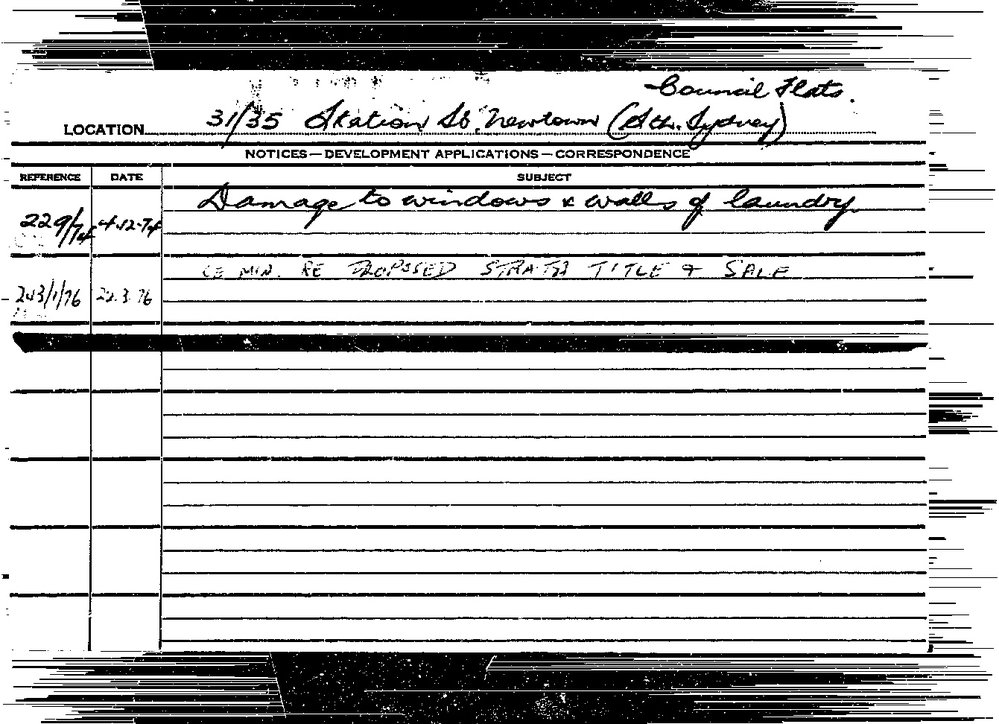 Council Flats.
LOCATION 31/35 Station St. Newtown (Sth. Sydney)
NOTICES—DEVELOPMENT APPLICATIONS—CORRESPONDENCE
REFERENCE DATE SUBJECT
Damage to windows & walls of laundry.
229/74 4.12.74
MIN. RE PROPOSED STRATA TITLE & SALE
243/1/76 22.3.76